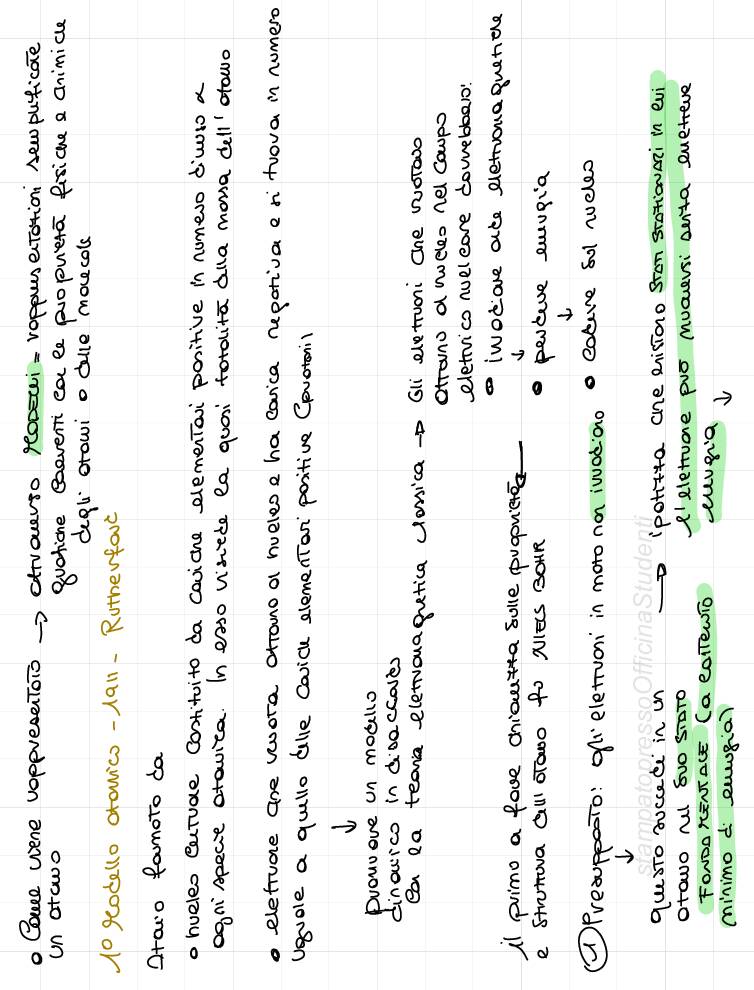 • Come viene rappresentato → attraverso MODELLI = rappresentazioni semplificate
un atomo
grafiche coerenti con le proprietà fisiche e chimiche
degli atomi o delle molecole
1° Modello atomico - 1911 - Rutherford
Atomo formato da
• nucleo centrale costituito da cariche elementari positive in numero diverso x
ogni specie atomica. In esso risiede la quasi totalità della massa dell'atomo
• elettrone che ruota attorno al nucleo e ha carica negativa e si trova in numero
uguale a quello delle cariche elementari positive (protoni)
↓
promuove un modello
dinamico in disaccordo
con la teoria elettromagnetica classica → Gli elettroni che ruotano
attorno al nucleo nel campo
elettrico nucleare dovrebbero:
• irradiare onde elettromagnetiche
↓
• perdere energia
↓
• cadere sul nucleo
il primo a fare chiarezza sulle proprietà
e struttura dell'atomo fu NIELS BOHR
① Presupposto: gli elettroni in moto non irradiano
↓
questo succede in un → ipotizza che esistono STATI STAZIONARI in cui
atomo nel SUO STATO l'elettrone può muoversi senza emettere
FONDAMENTALE (a contenuto energia ↓
minimo di energia)
stampatopressoOfficinaStudenti